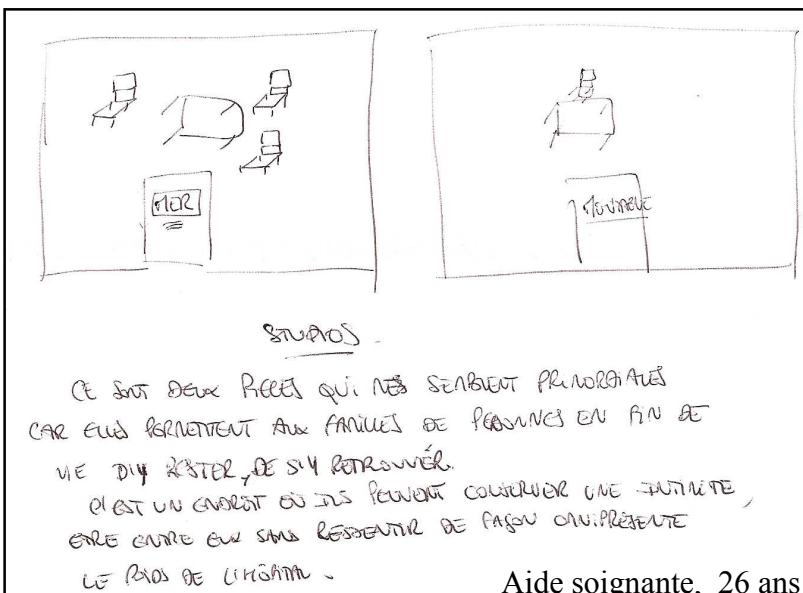 MER
MONTAGNE
STUDIOS
CE SONT DEUX PIECES QUI MES SEMBLENT PRIMORDIALES
CAR ELLES PERMETTENT AUX FAMILLES DE PERSONNES EN FIN DE
VIE D'Y RESTER, DE S'Y RETROUVER.
C'EST UN ENDROIT OU ILS PEUVENT CONSERVER UNE INTIMITE,
ETRE ENTRE EUX SANS RESSENTIR DE FAÇON OMNIPRÉSENTE
LE POIDS DE L'HÔPITAL.
Aide soignante, 26 ans